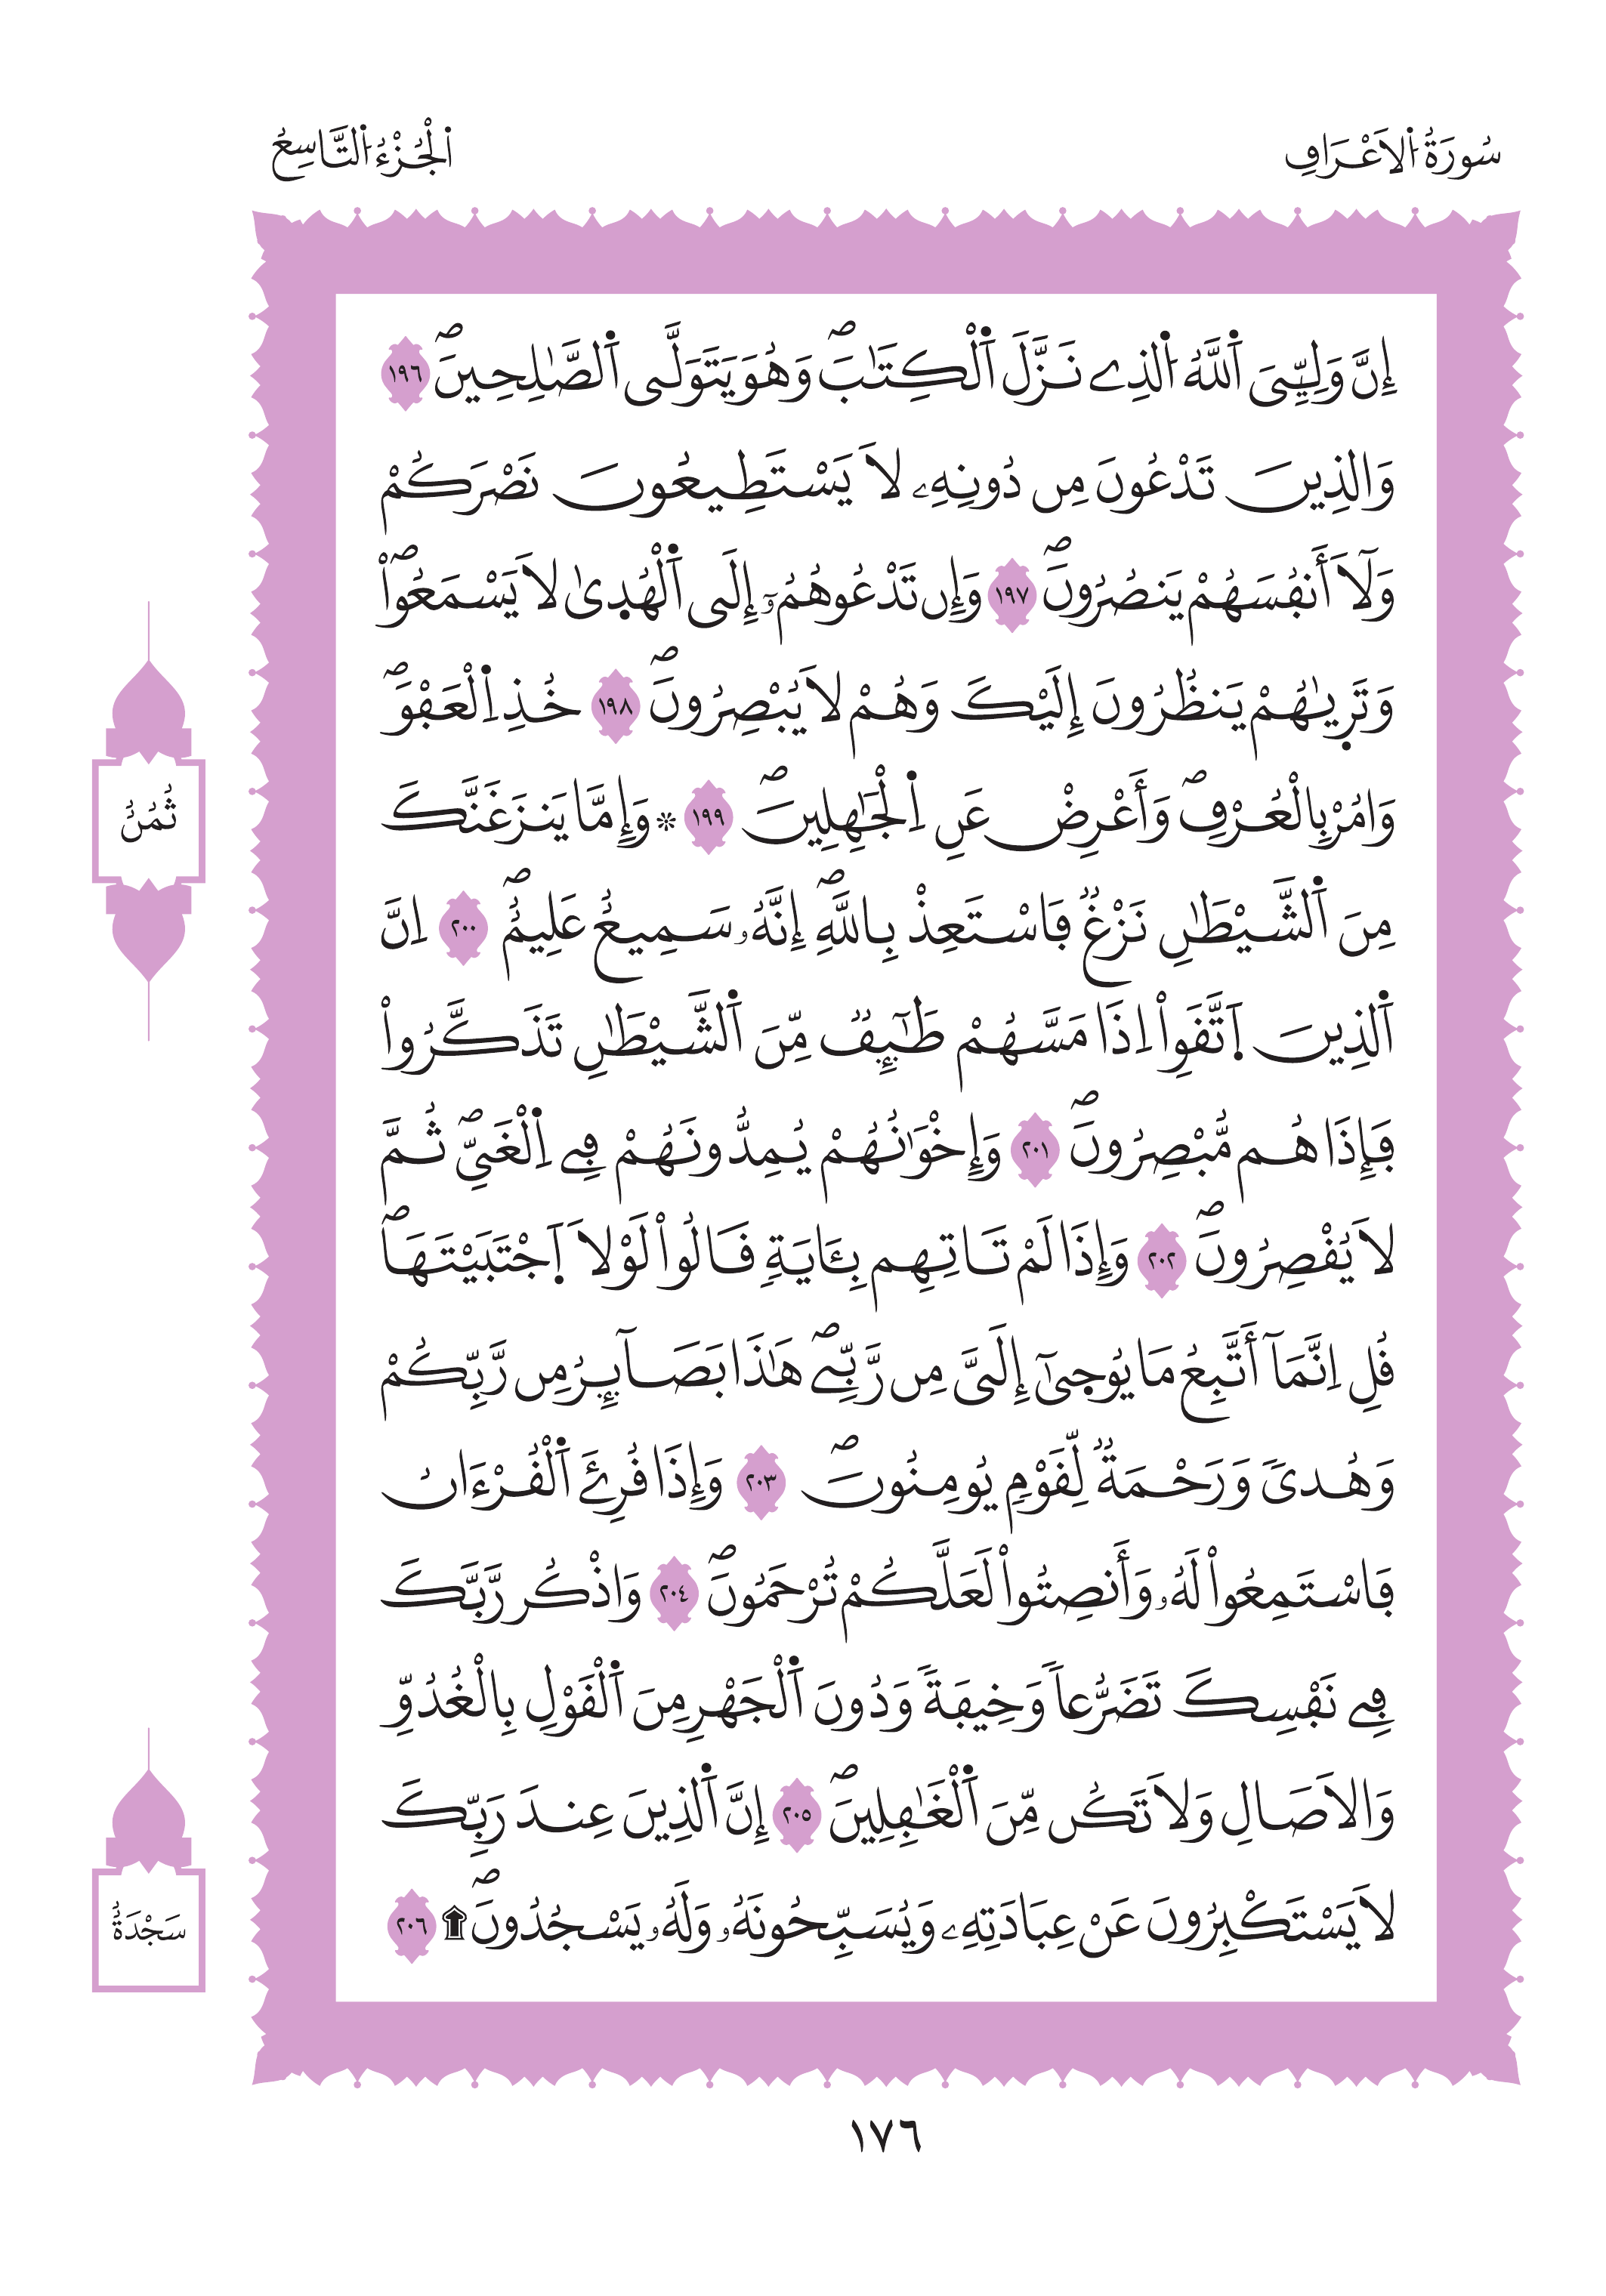 سُورَةُ اُ۬لَاعْرَافِ
اَ۬لْجُزْءُ اُ۬لتَّاسِعُ
إِنَّ وَلِيِّيَ اَ۬للَّهُ اُ۬لذِے نَزَّلَ اَ۬لْكِتَٰبَۖ وَهُوَ يَتَوَلَّى اَ۬لصَّٰلِحِينَۖ ١٩٦
وَالذِينَ تَدْعُونَ مِن دُونِهِۦ لَا يَسْتَطِيعُونَ نَصْرَكُمْ
وَلَآ أَنفُسَهُمْ يَنصُرُونَۖ ١٩٧ وَإِن تَدْعُوهُمُۥٓ إِلَى اَ۬لْهُد۪ىٰ لَا يَسْمَعُواْۖ
وَتَر۪يٰهُمْ يَنظُرُونَ إِلَيْكَ وَهُمْ لَا يُبْصِرُونَۖ ١٩٨ خُذِ اِ۬لْعَفْوَۖ
وَامُرْ بِالْعُرْفِۖ وَأَعْرِضْ عَنِ اِ۬لْجَٰهِلِينَۖ ١٩٩ ۞ وَإِمَّا يَنزَغَنَّكَ
مِنَ اَ۬لشَّيْطَٰنِ نَزْغٞ فَاسْتَعِذْ بِاللَّهِۖ إِنَّهُۥ سَمِيعٌ عَلِيمٌۖ ٢٠٠ اِنَّ
اَ۬لذِينَ اَ۪تَّقَوِاْ اِذَا مَسَّهُمْ طَٰٓئِفٞ مِّنَ اَ۬لشَّيْطَٰنِ تَذَكَّرُواْ
فَإِذَا هُم مُّبْصِرُونَۖ ٢٠١ وَإِخْوَٰنُهُمْ يُمِدُّونَهُمْ فِے اِ۬لْغَيِّۖ ثُمَّ
لَا يُقْصِرُونَۖ ٢٠٢ وَإِذَا لَمْ تَاتِهِم بِـَٔايَةٖ قَالُواْ لَوْلَا اَ۪جْتَبَيْتَهَاۖ
قُلِ اِنَّمَآ أَتَّبِعُ مَا يُوحَىٰٓ إِلَيَّ مِن رَّبِّےۖ هَٰذَا بَصَآئِرُ مِن رَّبِّكُمْ
وَهُدىٗ وَرَحْمَةٞ لِّقَوْمٖ يُومِنُونَۖ ٢٠٣ وَإِذَا قُرِئَ اَ۬لْقُرْءَانُ
فَاسْتَمِعُواْ لَهُۥ وَأَنصِتُواْ لَعَلَّكُمْ تُرْحَمُونَۖ ٢٠٤ وَاذْكُر رَّبَّكَ
فِے نَفْسِكَ تَضَرُّعاٗ وَخِيفَةٗ وَدُونَ اَ۬لْجَهْرِ مِنَ اَ۬لْقَوْلِ بِالْغُدُوِّ
وَالَاصَالِ وَلَا تَكُن مِّنَ اَ۬لْغَٰفِلِينَۖ ٢٠٥ إِنَّ اَ۬لذِينَ عِندَ رَبِّكَ
لَا يَسْتَكْبِرُونَ عَنْ عِبَادَتِهِۦ وَيُسَبِّحُونَهُۥ وَلَهُۥ يَسْجُدُونَۖ ۩ ٢٠٦
ثُمُنُ
سَجْدَةٌ
١٧٦